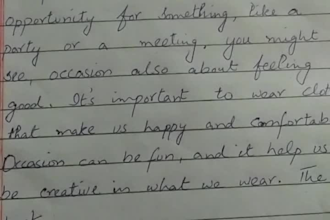 opportunity for something, like a
party or a meeting. you might
see, occasion also about feeling
good. It's important to wear clot
that make us happy and comfortab
Occasion can be fun, and it help us
be creative in what we wear. The